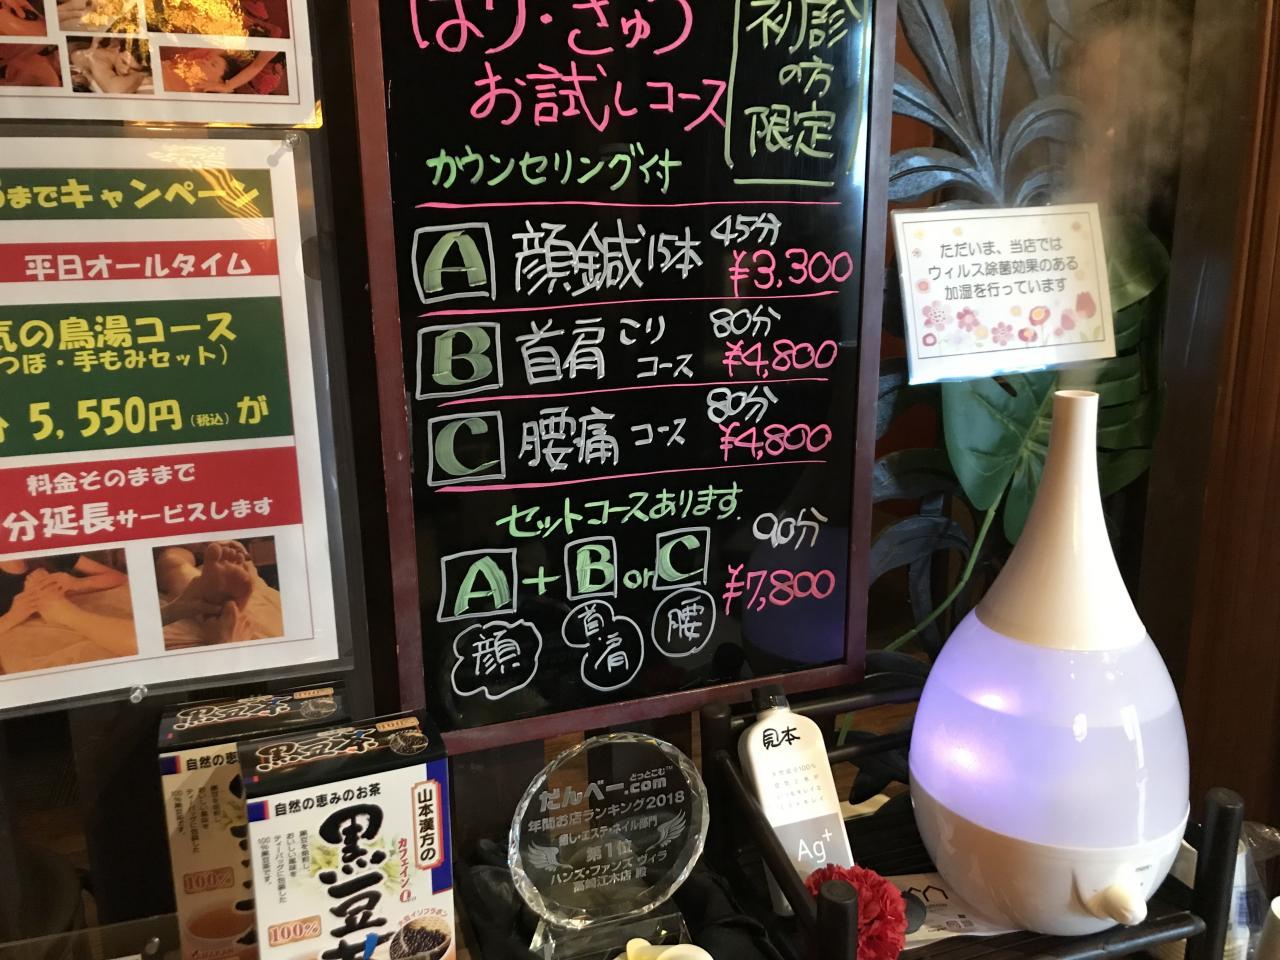 はり・きゅう
お試しコース
初診
の方
限定
カウンセリング付
A 顔鍼15本 45分 ¥3,300
B 首肩こりコース 80分 ¥4,800
C 腰痛コース 80分 ¥4,800
セットコースあります
A+B or C 90分 ¥7,800
顔
首肩
腰
までキャンペーン
平日オールタイム
気の鳥湯コース
つぼ・手もみセット)
5,550円(税込)が
料金そのままで
分延長サービスします
ただいま、当店では
ウィルス除菌効果のある
加湿を行っています
黒豆茶
自然の恵
100%
黒豆茶
自然の恵みのお茶
山本漢方の
カフェイン0
黒豆茶
100%
どっとこむ™
だんべー.com
年間お店ランキング2018
癒し・エステ・ネイル部門
第1位
ハンズ・ファンズ ヴィラ
高崎江木店 殿
見本
Ag+